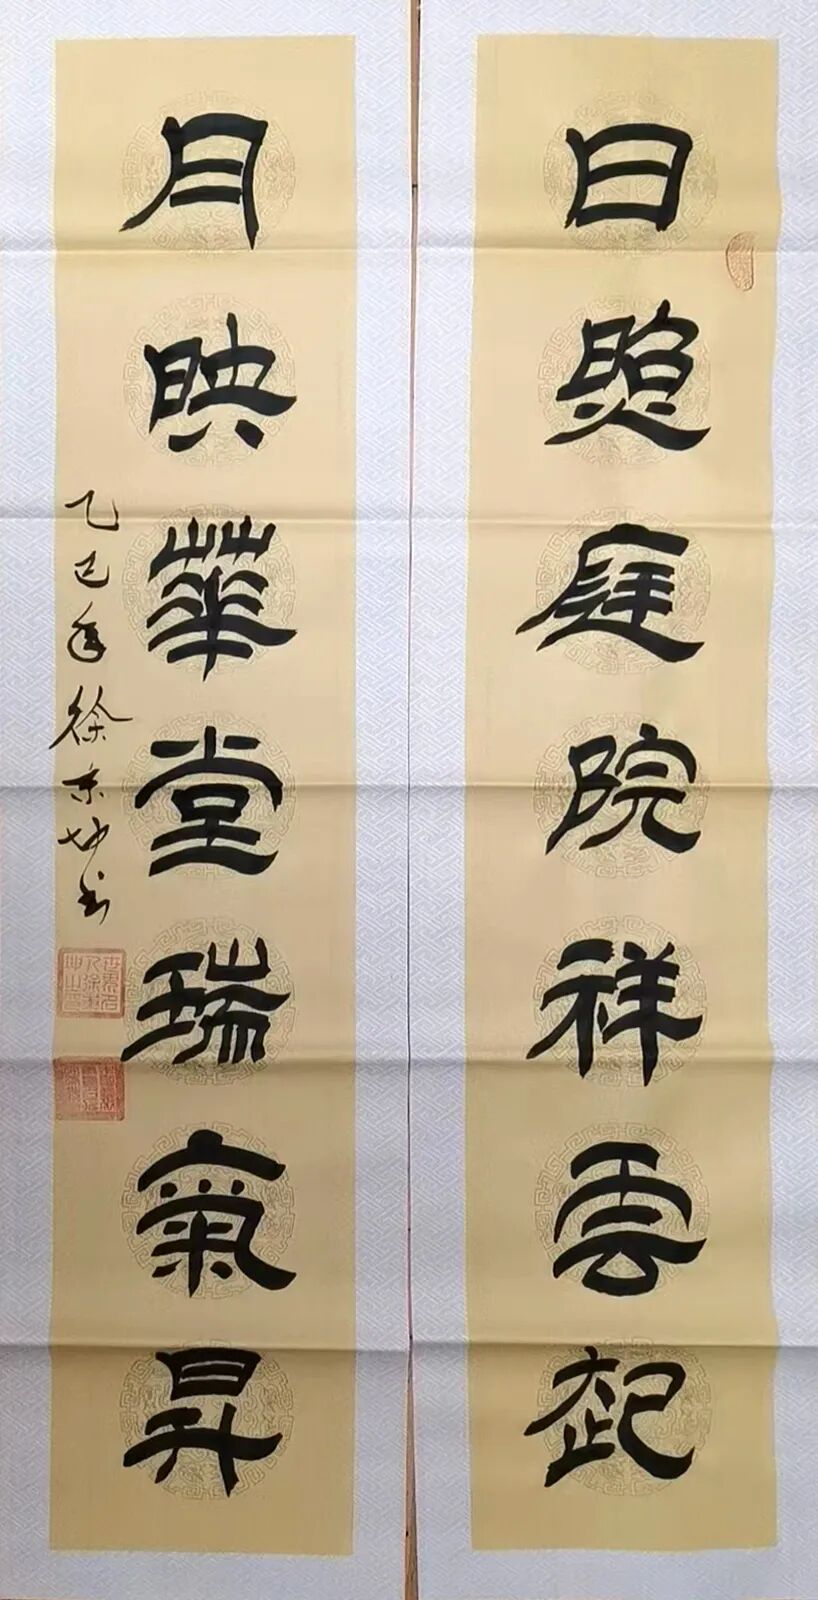 日照庭院祥雲起
月映華堂瑞氣昇
乙巳年徐京坤书